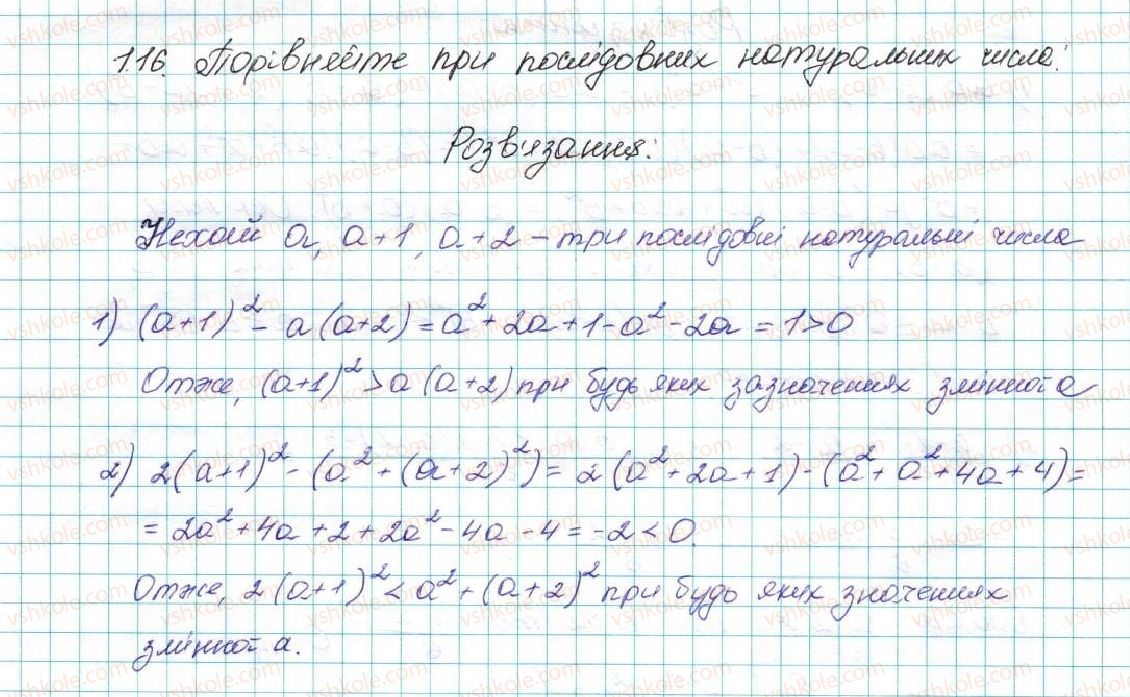 1.16. Порівняйте при послідовних натуральних числа:
Розв'язання:
Нехай a, a+1, a+2 – три послідовні натуральні числа
1) (a+1)² - a(a+2) = a² + 2a + 1 - a² - 2a = 1 > 0
Отже, (a+1)² > a(a+2) при будь яких зазначеннях змінної a
2) 2(a+1)² - (a² + (a+2)²) = 2(a² + 2a + 1) - (a² + a² + 4a + 4) =
= 2a² + 4a + 2 + 2a² - 4a - 4 = -2 < 0.
Отже, 2(a+1)² < a² + (a+2)² при будь яких значеннях
змінної a.